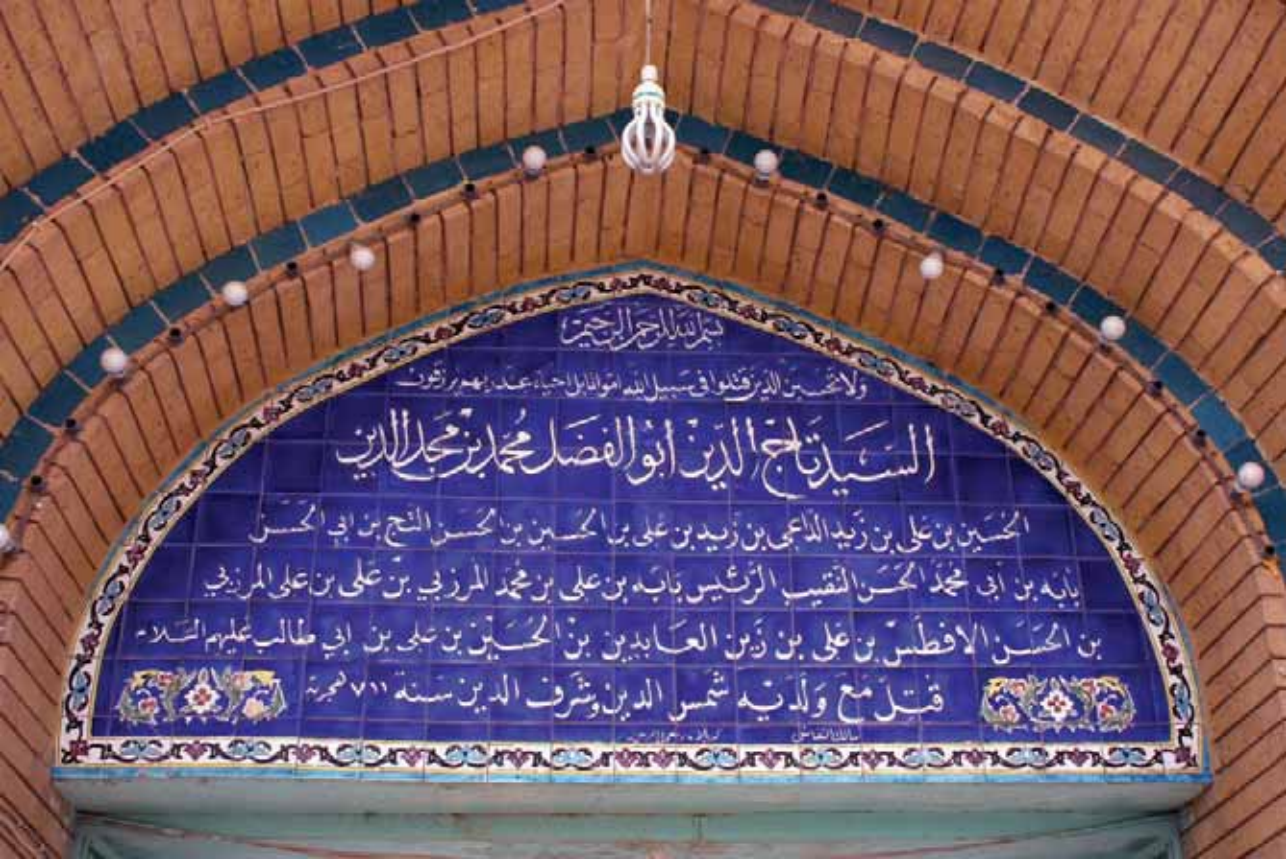 بسم الله الرحمن الرحيم
ولا تحسبن الذين قتلوا في سبيل الله امواتا بل احياء عند ربهم يرزقون
السيد تاج الدين ابو الفضل محمد بن مجد الدين
الحسين بن علي بن زيد الداعي بن زيد بن علي بن الحسين بن الحسن التج بن ابي الحسن
بابه بن ابي محمد الحسن النقيب الرئيس بابه بن علي بن محمد المرزبي بن علي بن علي المرزبي
بن الحسن الافطس بن علي بن زين العابدين بن الحسين بن علي بن ابي طالب عليهم السلام
قتل مع ولديه شمس الدين وشرف الدين سنة ٧١١ هجرية